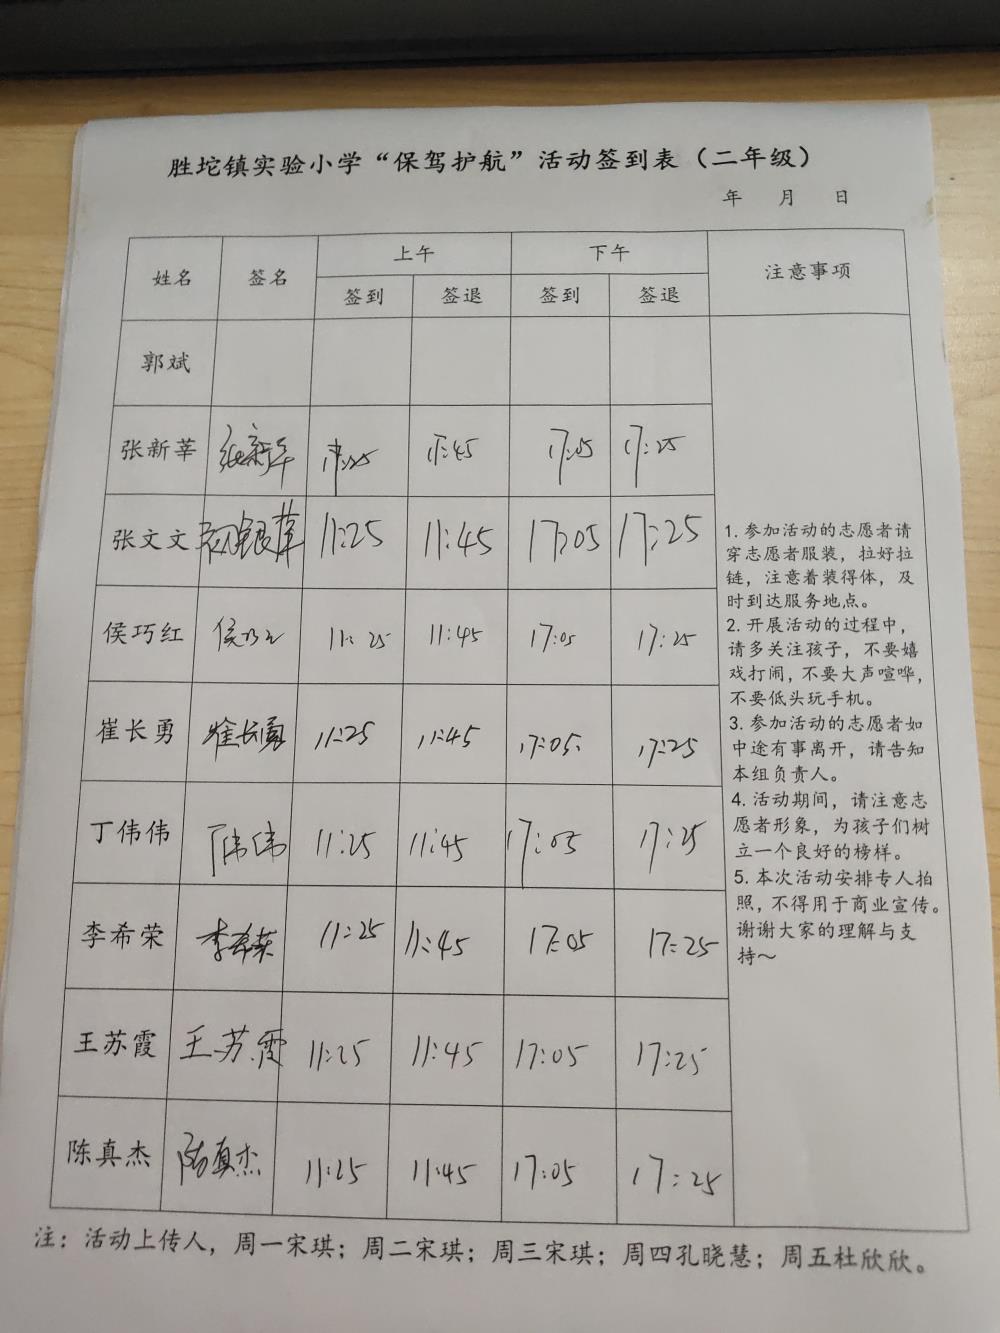 胜坨镇实验小学“保驾护航”活动签到表（二年级）
年 月 日
姓名 签名 上午 下午 注意事项
签到 签退 签到 签退
郭斌
张新莘 张新华 11:25 11:45 17:05 17:25
张文文 11:25 11:45 17:05 17:25
侯巧红 侯巧红 11:25 11:45 17:05 17:25
崔长勇 崔长勇 11:25 11:45 17:05 17:25
丁伟伟 丁伟伟 11:25 11:45 17:05 17:25
李希荣 李希荣 11:25 11:45 17:05 17:25
王苏霞 王苏霞 11:25 11:45 17:05 17:25
陈真杰 陈真杰 11:25 11:45 17:05 17:25
1. 参加活动的志愿者请
穿志愿者服装，拉好拉
链，注意着装得体，及
时到达服务地点。
2. 开展活动的过程中，
请多关注孩子，不要嬉
戏打闹，不要大声喧哗，
不要低头玩手机。
3. 参加活动的志愿者如
中途有事离开，请告知
本组负责人。
4. 活动期间，请注意志
愿者形象，为孩子们树
立一个良好的榜样。
5. 本次活动安排专人拍
照，不得用于商业宣传。
谢谢大家的理解与支
持～
注：活动上传人，周一宋琪；周二宋琪；周三宋琪；周四孔晓慧；周五杜欣欣。